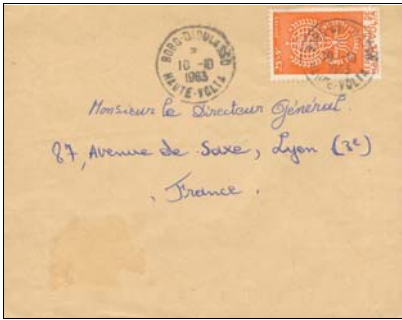 BOBO-DIOULASSO
10-10
1963
HAUTE-VOLTA
Monsieur le Directeur Général.
87, Avenue de Saxe, Lyon (3e)
. France .